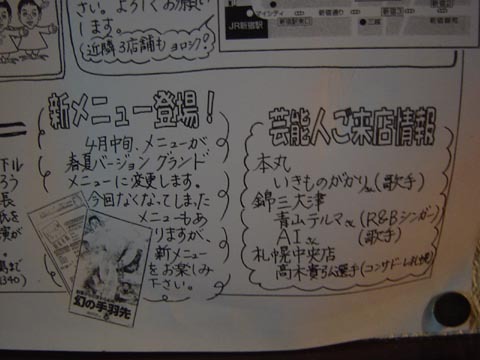 さい。よろしくお願い
します。
近隣3店舗も ヨロシク!
JR新宿駅
新メニュー登場!
4月中旬、メニューが
春夏バージョン グランド
メニューに変更します。
今回なくなってしまった
メニューもあ
りますが、
新メニュー
をお楽しみ
下さい。
幻の手羽先
芸能人ご来店情報
本丸
いきものがかりさん(歌手)
錦三大津
青山テルマさん(R&Bシンガー)
AIさん (歌手)
札幌中央店
高木貴弘選手(コンサドーレ札幌)